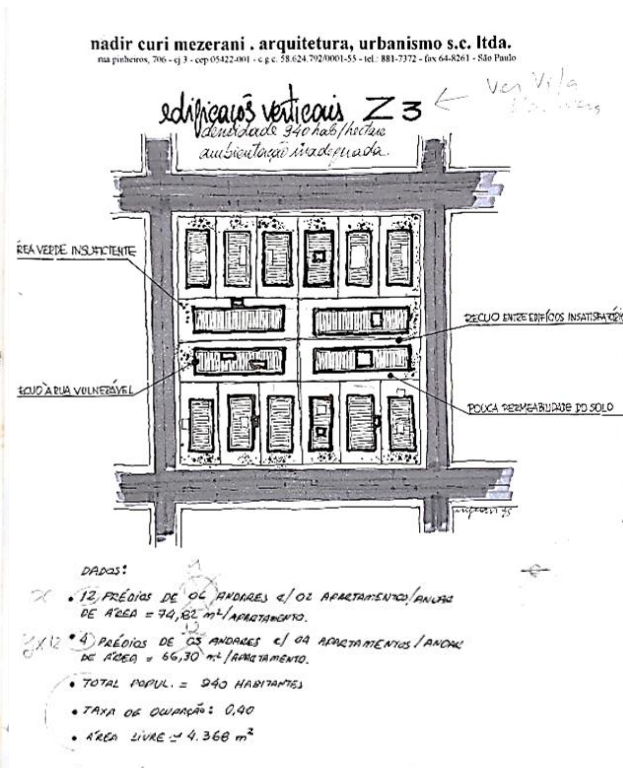 nadir curi mezerani . arquitetura, urbanismo s.c. ltda.
rua pinheiros, 706 - cj 3 - cep 05422-001 - c g c. 58.624.792/0001-55 - tel.: 881-7372 - fax 64-8261 - São Paulo
Ver Vila
edificações verticais Z 3
densidade 940 hab/hectare
ambientação inadequada.
ÁREA VERDE INSUFICIENTE
RECUO ENTRE EDIFÍCIOS INSATISFATÓRIO
RECUO À RUA VULNERÁVEL
POUCA PERMEABILIDADE DO SOLO
DADOS:
• 12 PRÉDIOS DE 06 ANDARES C/ 02 APARTAMENTOS/ANDAR
DE ÁREA = 74,82 m²/APARTAMENTO.
x12
• 4 PRÉDIOS DE 03 ANDARES C/ 04 APARTAMENTOS/ANDAR
DE ÁREA = 66,30 m²/APARTAMENTO.
• TOTAL POPUL. = 940 HABITANTES
• TAXA DE OCUPAÇÃO: 0,40
• ÁREA LIVRE = 4.368 m²